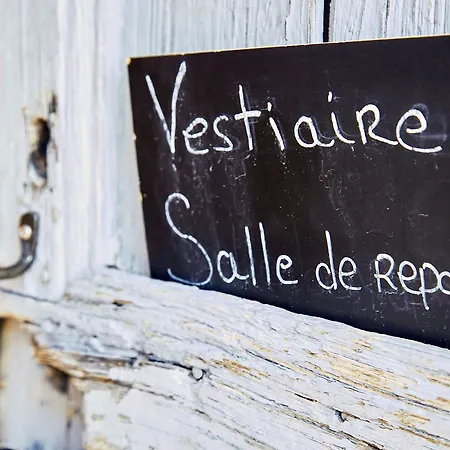 Vestiaire
Salle de Repo